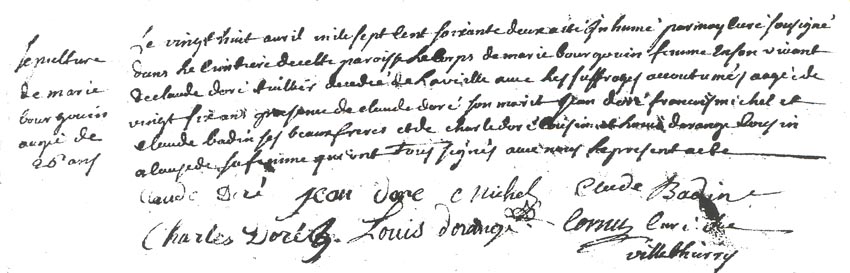 sepulture
de marie
bourgouin
augée de
26 ans
Le vingt huit avril mile sept cent soixante deux a été inhumé par moy curé sousigné
dans le cimetiere de cette paroisse le corps de marie bourgouin femme en son vivant
de claude doré decedée de la veille avec les suffrages accoutumés aagée de
vingt six ans presence de claude doré son marit jean doré francois michel et
claude badin ses beaux freres et de charle doré cousin et louis dorange cousin
a cause de sa femme qui ont tous signés avec nous le present acte
Claude Doré jean dore C Michel Claude Badin
Charles Doré Louis dorange Cornu Curé de
villethierry